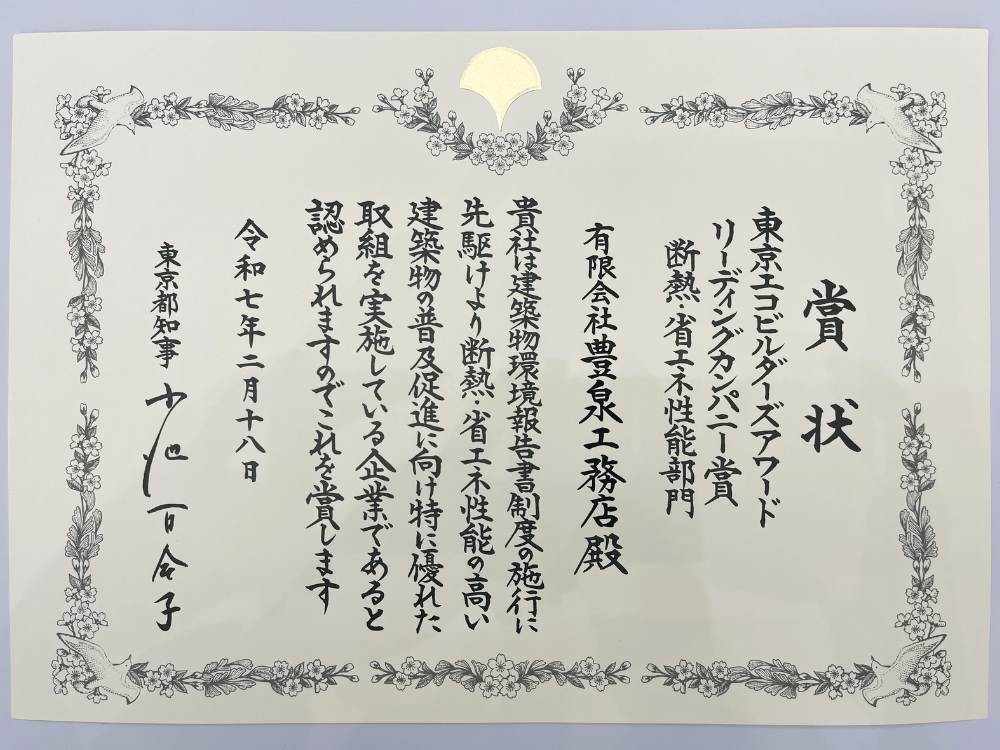 賞状
東京エコビルダーズアワード
リーディングカンパニー賞
断熱・省エネ性能部門
有限会社豊泉工務店殿
貴社は建築物環境報告書制度の施行に
先駆けより断熱・省エネ性能の高い
建築物の普及促進に向け特に優れた
取組を実施している企業であると
認められますのでこれを賞します
令和七年二月十八日
東京都知事 小池百合子